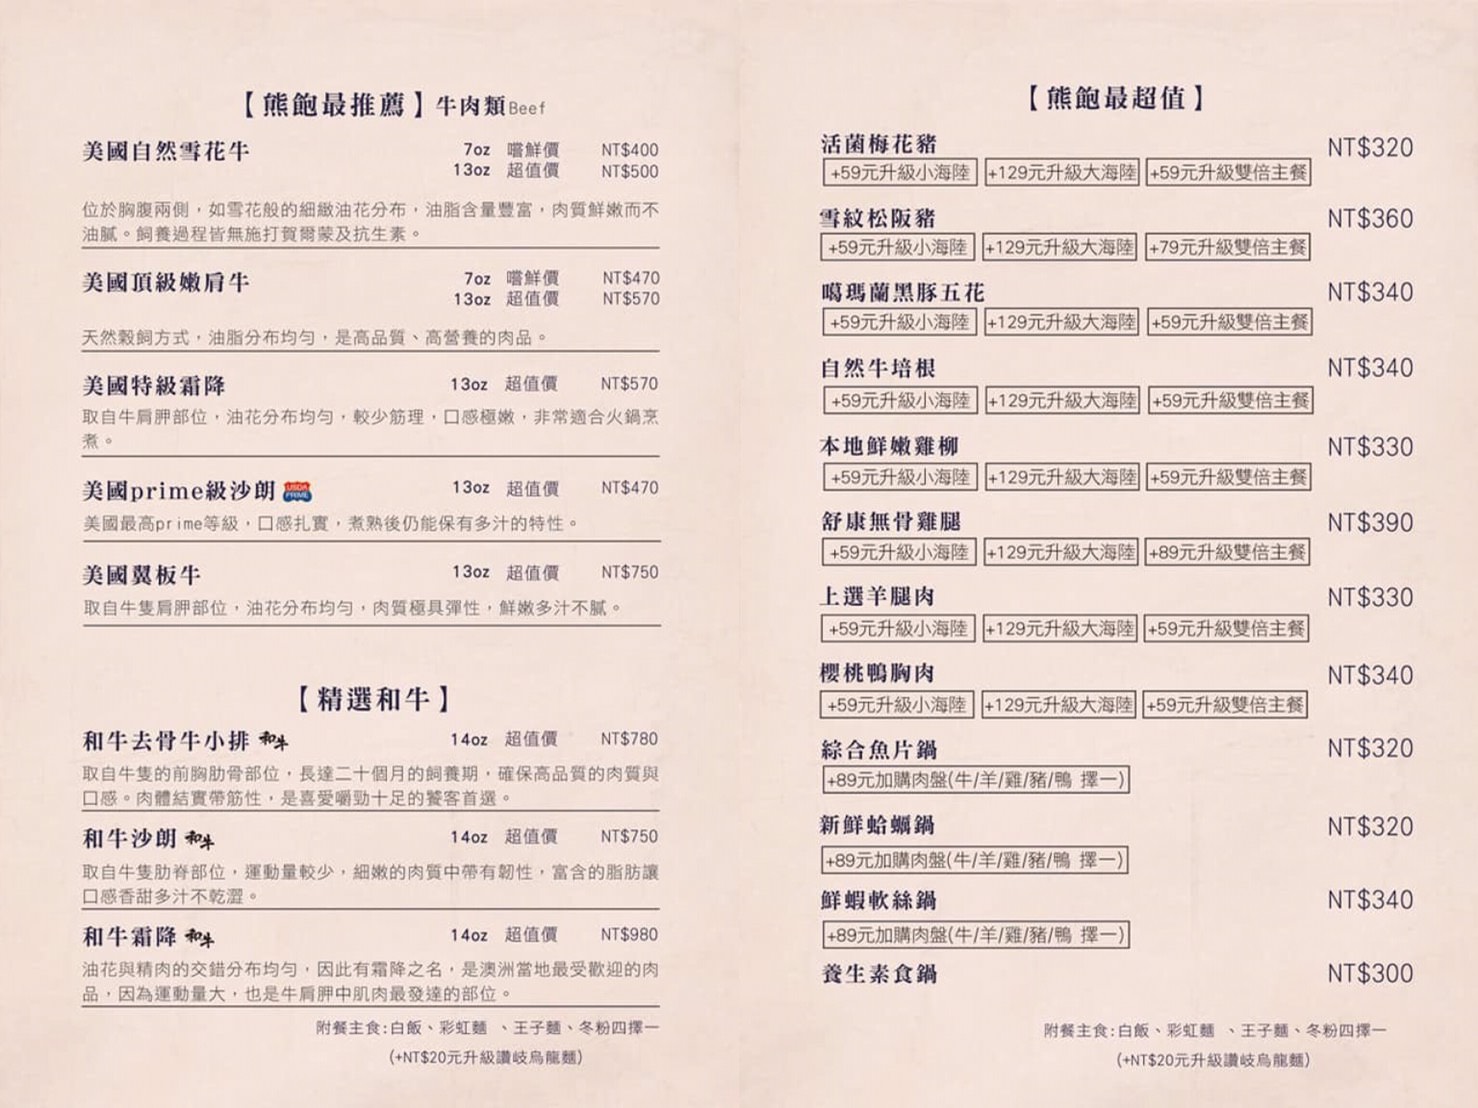 【熊飽最推薦】牛肉類Beef
美國自然雪花牛 7oz 嚐鮮價 NT$400
13oz 超值價 NT$500
位於胸腹兩側，如雪花般的細緻油花分布，油脂含量豐富，肉質鮮嫩而不
油膩。飼養過程皆無施打賀爾蒙及抗生素。
美國頂級嫩肩牛 7oz 嚐鮮價 NT$470
13oz 超值價 NT$570
天然穀飼方式，油脂分布均勻，是高品質、高營養的肉品。
美國特級霜降 13oz 超值價 NT$570
取自牛肩胛部位，油花分布均勻，較少筋理，口感極嫩，非常適合火鍋烹
煮。
美國prime級沙朗 USDA PRIME 13oz 超值價 NT$470
美國最高prime等級，口感扎實，煮熟後仍能保有多汁的特性。
美國翼板牛 13oz 超值價 NT$750
取自牛隻肩胛部位，油花分布均勻，肉質極具彈性，鮮嫩多汁不膩。
【精選和牛】
和牛去骨牛小排 和牛 14oz 超值價 NT$780
取自牛隻的前胸肋骨部位，長達二十個月的飼養期，確保高品質的肉質與
口感。肉體結實帶筋性，是喜愛嚼勁十足的饕客首選。
和牛沙朗 和牛 14oz 超值價 NT$750
取自牛隻肋脊部位，運動量較少，細嫩的肉質中帶有韌性，富含的脂肪讓
口感香甜多汁不乾澀。
和牛霜降 和牛 14oz 超值價 NT$980
油花與精肉的交錯分布均勻，因此有霜降之名，是澳洲當地最受歡迎的肉
品，因為運動量大，也是牛肩胛中肌肉最發達的部位。
附餐主食:白飯、彩虹麵 、王子麵、冬粉四擇一
(+NT$20元升級讚岐烏龍麵)
【熊飽最超值】
活菌梅花豬 NT$320
+59元升級小海陸 +129元升級大海陸 +59元升級雙倍主餐
雪紋松阪豬 NT$360
+59元升級小海陸 +129元升級大海陸 +79元升級雙倍主餐
噶瑪蘭黑豚五花 NT$340
+59元升級小海陸 +129元升級大海陸 +59元升級雙倍主餐
自然牛培根 NT$340
+59元升級小海陸 +129元升級大海陸 +59元升級雙倍主餐
本地鮮嫩雞柳 NT$330
+59元升級小海陸 +129元升級大海陸 +59元升級雙倍主餐
舒康無骨雞腿 NT$390
+59元升級小海陸 +129元升級大海陸 +89元升級雙倍主餐
上選羊腿肉 NT$330
+59元升級小海陸 +129元升級大海陸 +59元升級雙倍主餐
櫻桃鴨胸肉 NT$340
+59元升級小海陸 +129元升級大海陸 +59元升級雙倍主餐
綜合魚片鍋 NT$320
+89元加購肉盤(牛/羊/雞/豬/鴨 擇一)
新鮮蛤蠣鍋 NT$320
+89元加購肉盤(牛/羊/雞/豬/鴨 擇一)
鮮蝦軟絲鍋 NT$340
+89元加購肉盤(牛/羊/雞/豬/鴨 擇一)
養生素食鍋 NT$300
附餐主食:白飯、彩虹麵 、王子麵、冬粉四擇一
(+NT$20元升級讚岐烏龍麵)